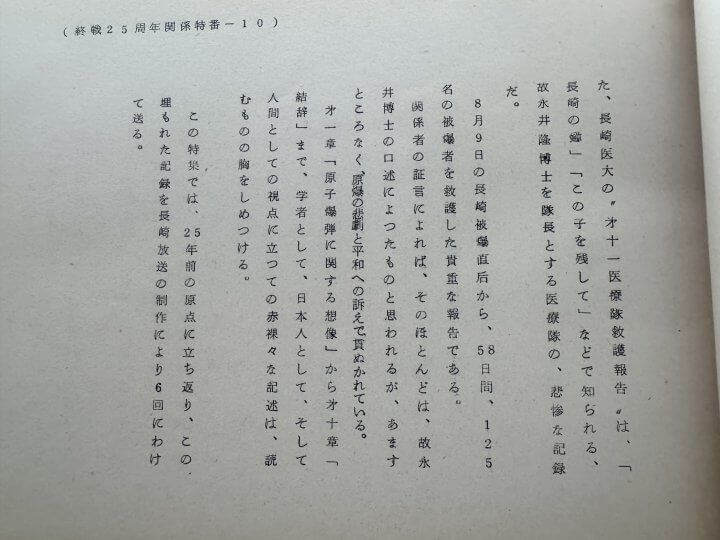 (終戦25周年関係特番－10)
た、長崎医大の〝才十一医療隊救護報告〟は、「
長崎の鐘」「この子を残して」などで知られる、
故永井隆博士を隊長とする医療隊の、悲惨な記録
だ。
8月9日の長崎被爆直后から、58日間、125
名の被爆者を救護した貴重な報告である。
関係者の証言によれば、そのほとんどは、故永
井博士の口述によつたものと思われるが、あます
ところなく、原爆の悲劇と平和への訴えで貫ぬかれている。
才一章「原子爆弾に関する想像」から才十章「
結辞」まで、学者として、日本人として、そして
人間としての視点に立つての赤裸々な記述は、読
むものの胸をしめつける。
この特集では、25年前の原点に立ち返り、この
埋もれた記録を長崎放送の制作により6回にわけ
て送る。